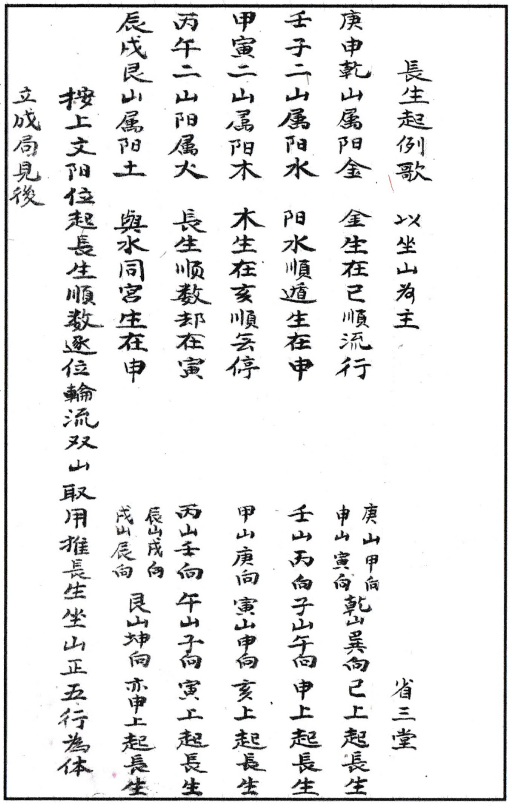 長生起例歌 以坐山為主 省三堂
庚申乾山属阳金 金生在巳順流行 庚山甲向 申山寅向 乾山巽向 巳上起長生
壬子二山属阳水 阳水順遁生在申 壬山丙向子山午向 申上起長生
甲寅二山属阳木 木生在亥順無停 甲山庚向寅山申向 亥上起長生
丙午二山阳属火 長生顺数却在寅 丙山壬向 午山子向 寅上起長生
辰戌艮山属阳土 與水同宮生在申 辰山戌向 戌山辰向 艮山坤向 亦申上起長生
按上文阳位起長生順数逐位輪流双山取用推長生坐山正五行為体
立成局見後